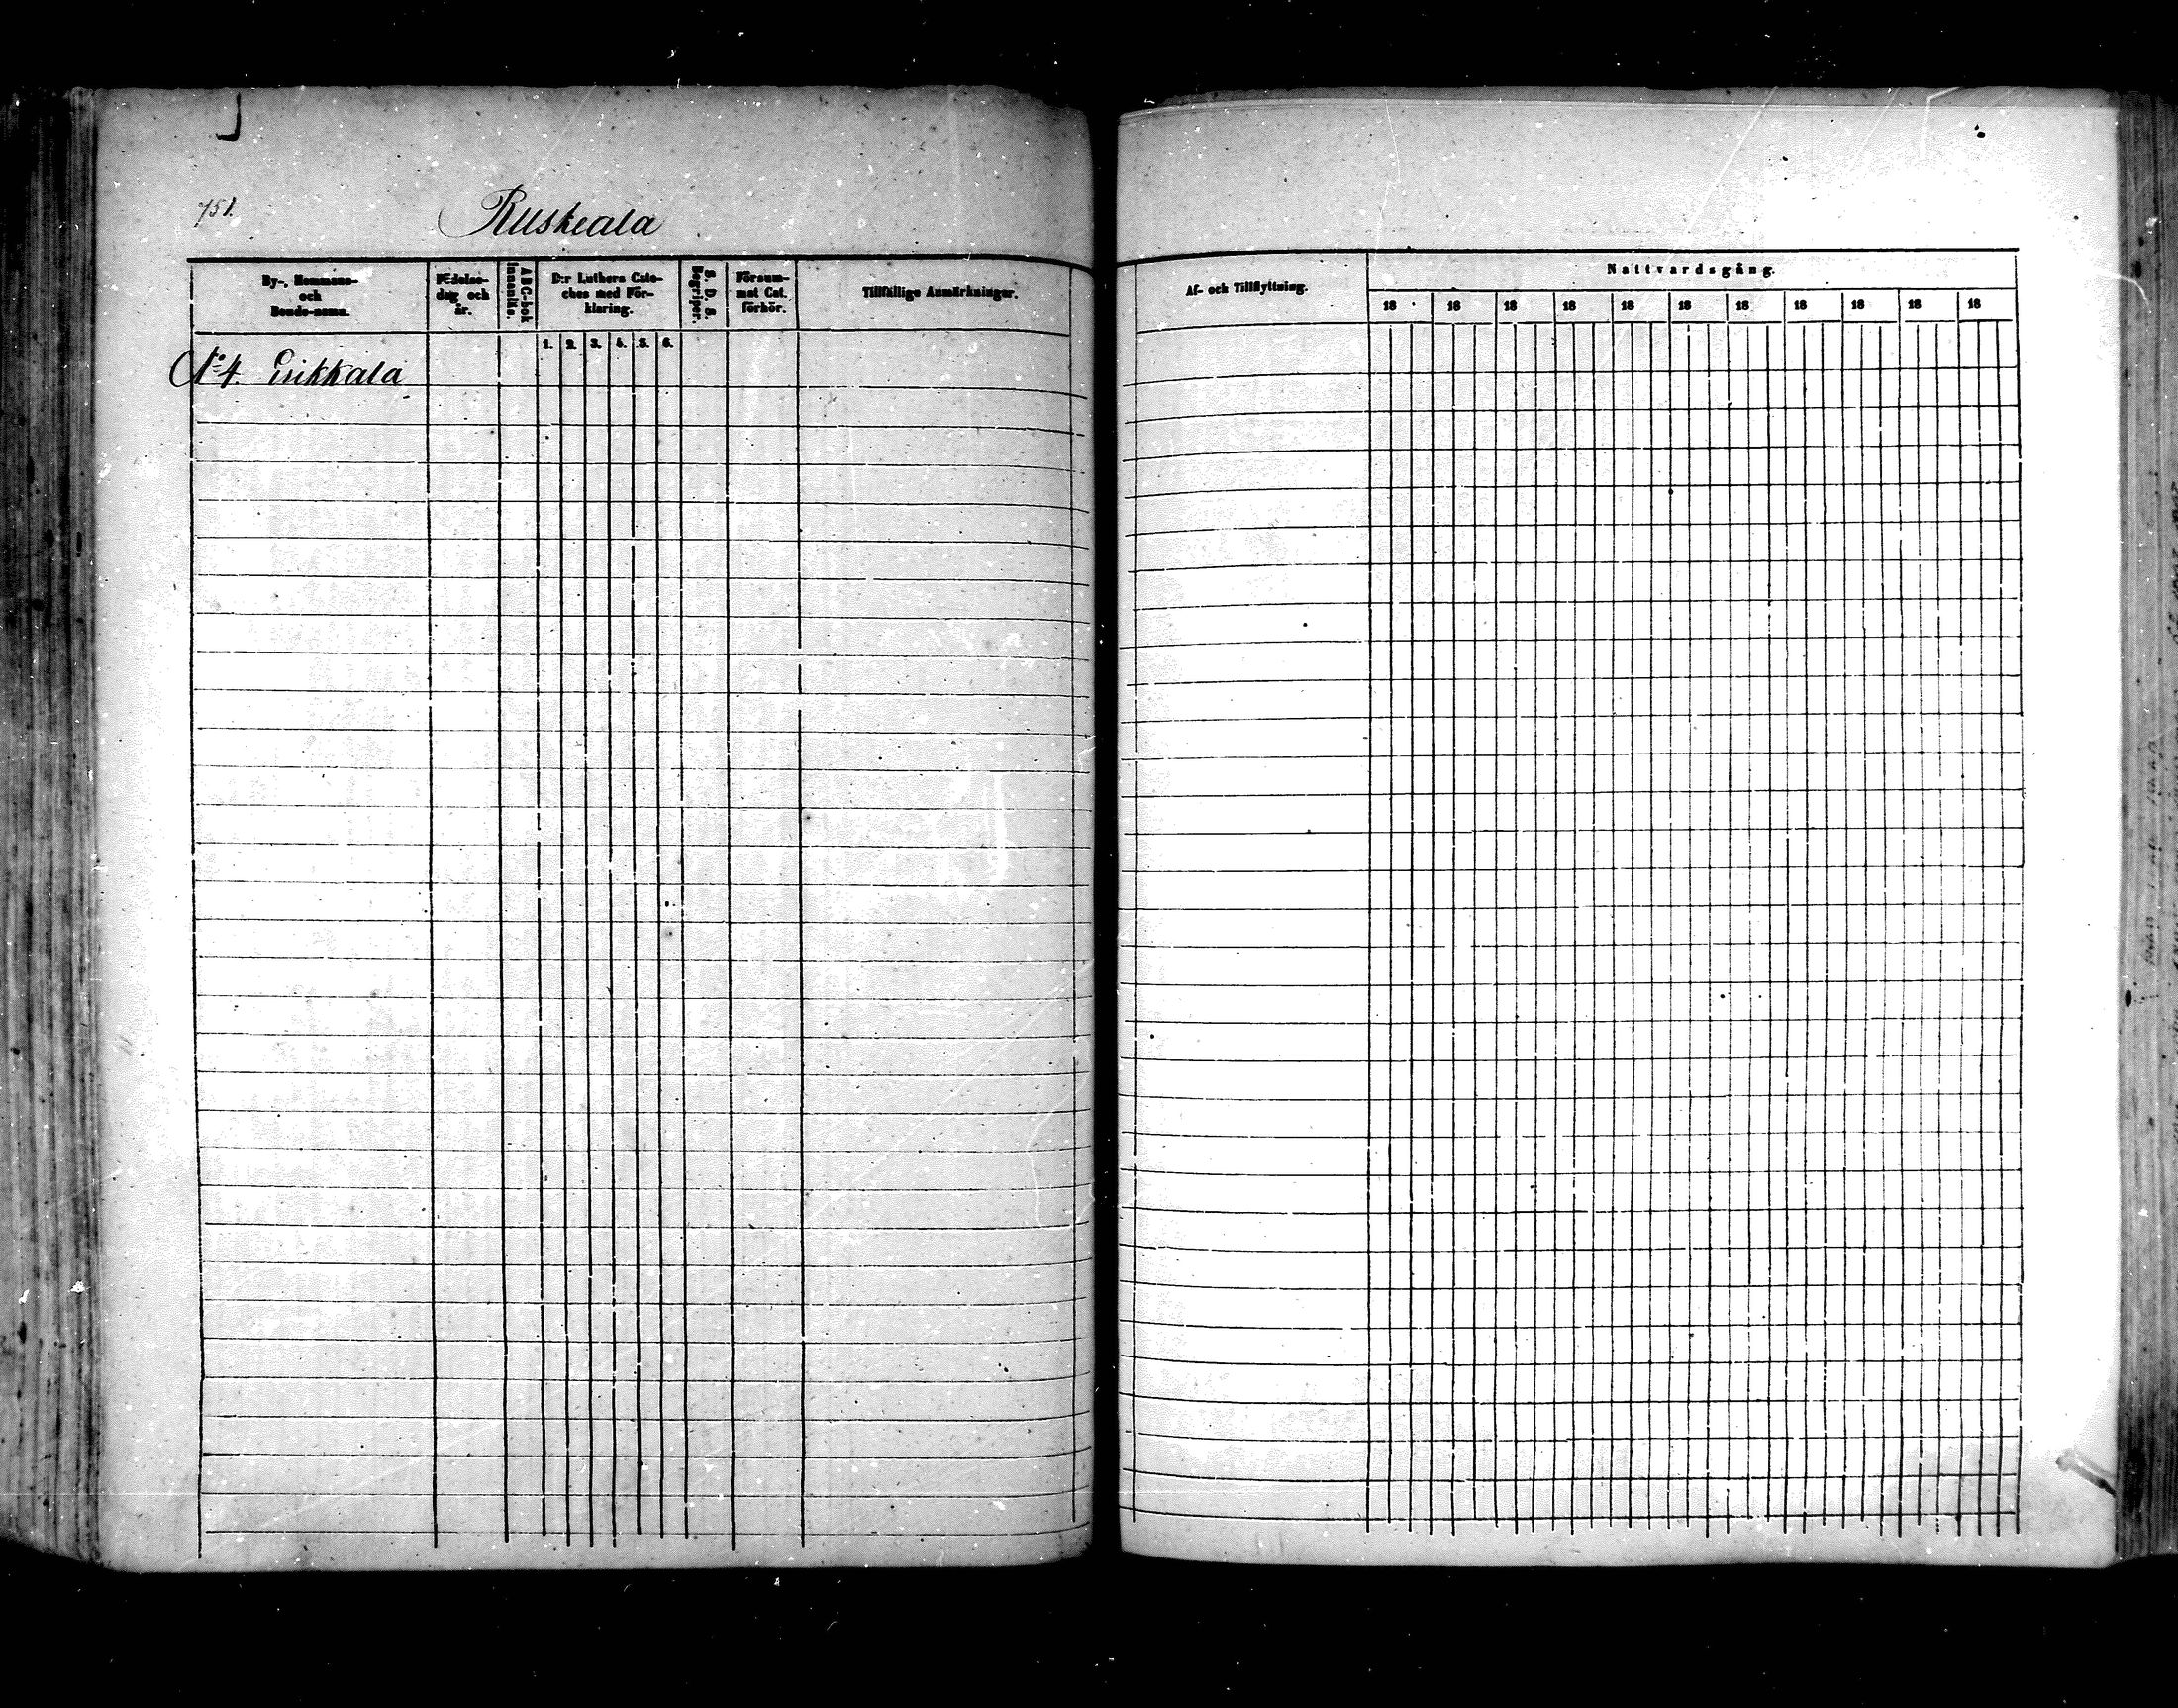 751.
Ruskeala
By-, Hemmans-
och
Bonde-namn.
Födelse-
dag och
år.
ABC-bok
innantill.
D:r Luthers Cate-
ches med För-
klaring.
S. D. S.
Begriper.
Försum-
mat Cat.
förhör.
Tillfällige Anmärkningar.
1. 2. 3. 4. 5. 6.
No 4.
Af- och Tillflyttning.
Nattvardsgång.
18 18 18 18 18 18 18 18 18 18 18